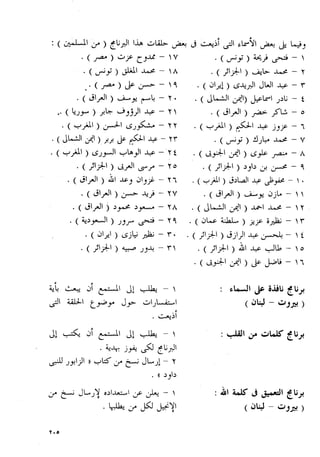 وفيما يلى بعض الأسماء التى أذيعت فى بعض حلقات هذا البرنامج ( من المسلمين ) :
١ – فتحى فريحة ( تونس ) .
٢ – محمد حايف ( الجزائر ) .
٣ – عبد العال البريدى ( إيران ) .
٤ – نادر إسماعيل ( اليمن الشمالى ) .
٥ – شاكر خضر ( العراق ) .
٦ – عزيز عبد الحكيم ( المغرب ) .
٧ – محمد مبارك ( تونس ) .
٨ – علوى مصر ( اليمن الجنوبى ) .
٩ – محسن بن داود ( الجزائر ) .
١٠ – محفوظى عبد الصادق ( المغرب ) .
١١ – مازن يوسف ( العراق ) .
١٢ – أحمد محمد ( اليمن الشمالى ) .
١٣ – نظيرة عزيز ( سلطنة عمان ) .
١٤ – بلحسن عبد الرازق ( الجزائر ) .
١٥ – طالب عبد الله ( الجزائر ) .
١٦ – فاضل على ( اليمن الجنوبى ) .
١٧ – ممدوح عزت ( مصر ) .
١٨ – محمد المغلق ( تونس ) .
١٩ – حسن على ( مصر ) .
٢٠ – باسم يوسف ( العراق ) .
٢١ – عبد الرؤوف جابر ( سوريا ) .
٢٢ – مشكورى الحسن ( المغرب ) .
٢٣ – عبد الحكيم على برير ( اليمن الشمالى ) .
٢٤ – عبد الوهاب السوسى ( المغرب ) .
٢٥ – مرسى العربى ( الجزائر ) .
٢٦ – غزوان سعد الله ( العراق ) .
٢٧ – فريد حسن ( العراق ) .
٢٨ – مسعود محمود ( العراق ) .
٢٩ – فتحى سرور ( السعودية ) .
٣٠ – نظير نيازى ( إيران ) .
٣١ – بدور نصيب ( الجزائر ) .
برنامج نافذة على السماء :
( بيروت – لبنان )
١ – يطلب إلى المستمع أن يبعث بأية
استفسارات حول موضوع الحلقة التى
أذيعت .
برنامج كلمات من القلب :
١ – يطلب إلى المستمع أن يكتب إلى
البرنامج لكى يفوز بهدية .
٢ – إرسال نسخ من كتاب « الزابور للنبى
داود » .
برنامج التعميق فى كلمة الله :
( بيروت – لبنان )
١ – يعلن عن استعداده لإرسال نسخ من
الإنجيل لكل من يطلبها .
٢٠٥